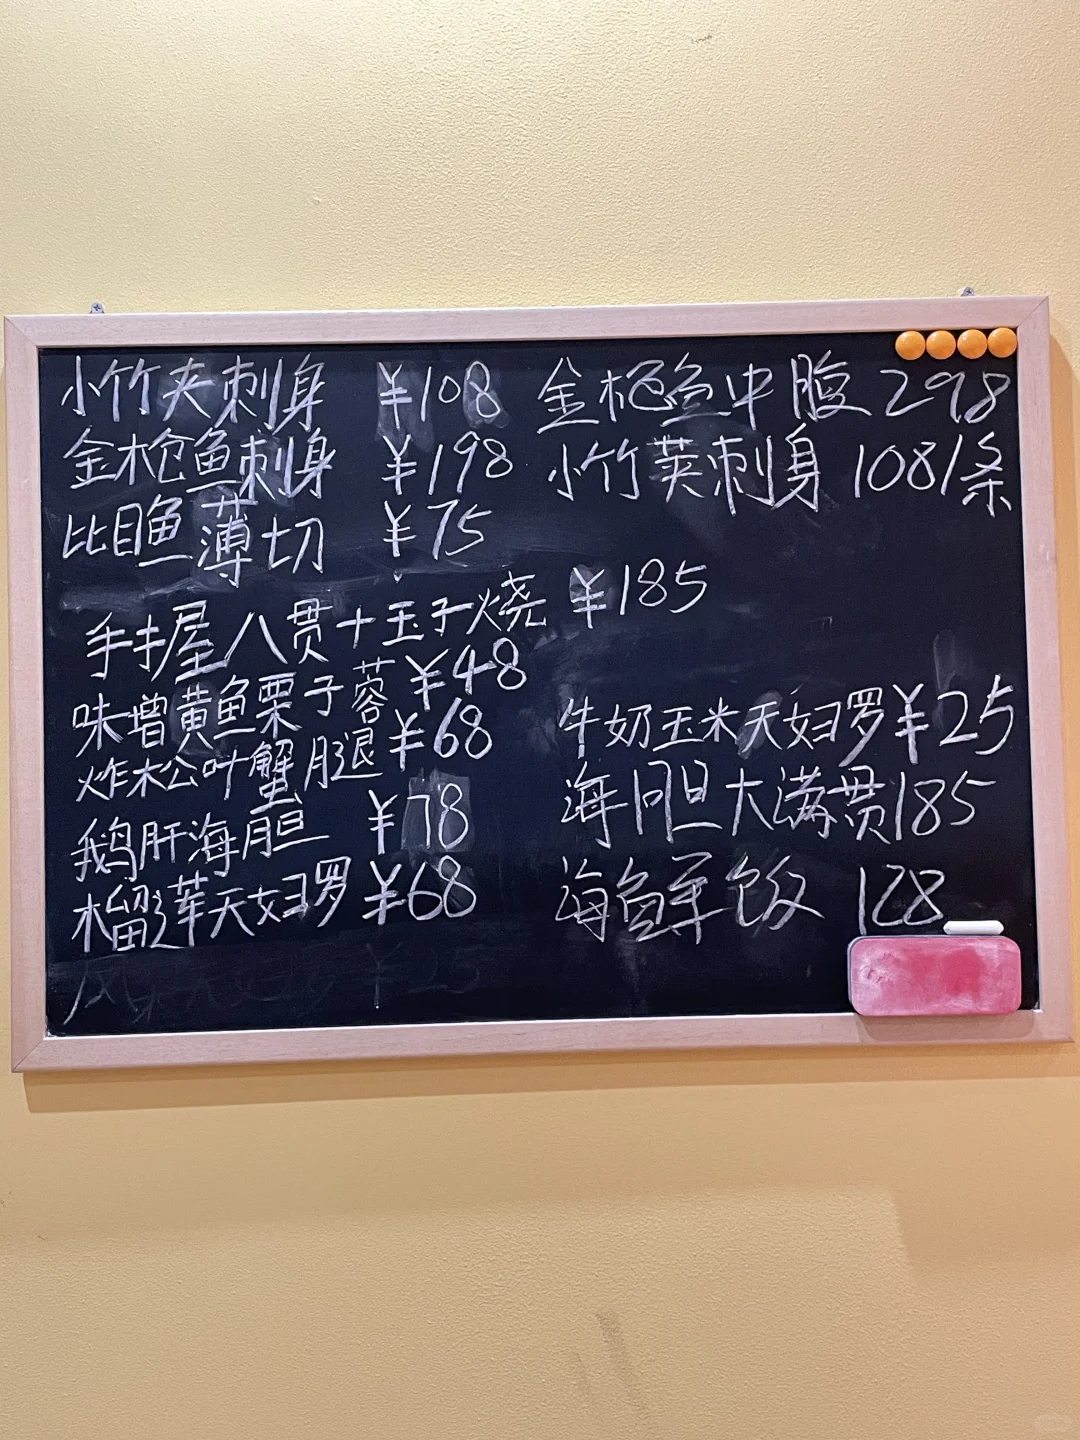 小竹夹刺身 ¥108
金枪鱼刺身 ¥198
比目鱼薄切 ¥75
手扌屋八贯十玉子烧 ¥185
味增黄鱼栗子蓉 ¥48
炸松叶蟹腿 ¥68
鹅肝海胆 ¥78
榴莲天妇罗 ¥68
天妇罗 ¥25
金枪鱼中腹 298
小竹荚刺身 108/条
牛奶玉米天妇罗 ¥25
海胆大满贯 185
海鲜饭 128